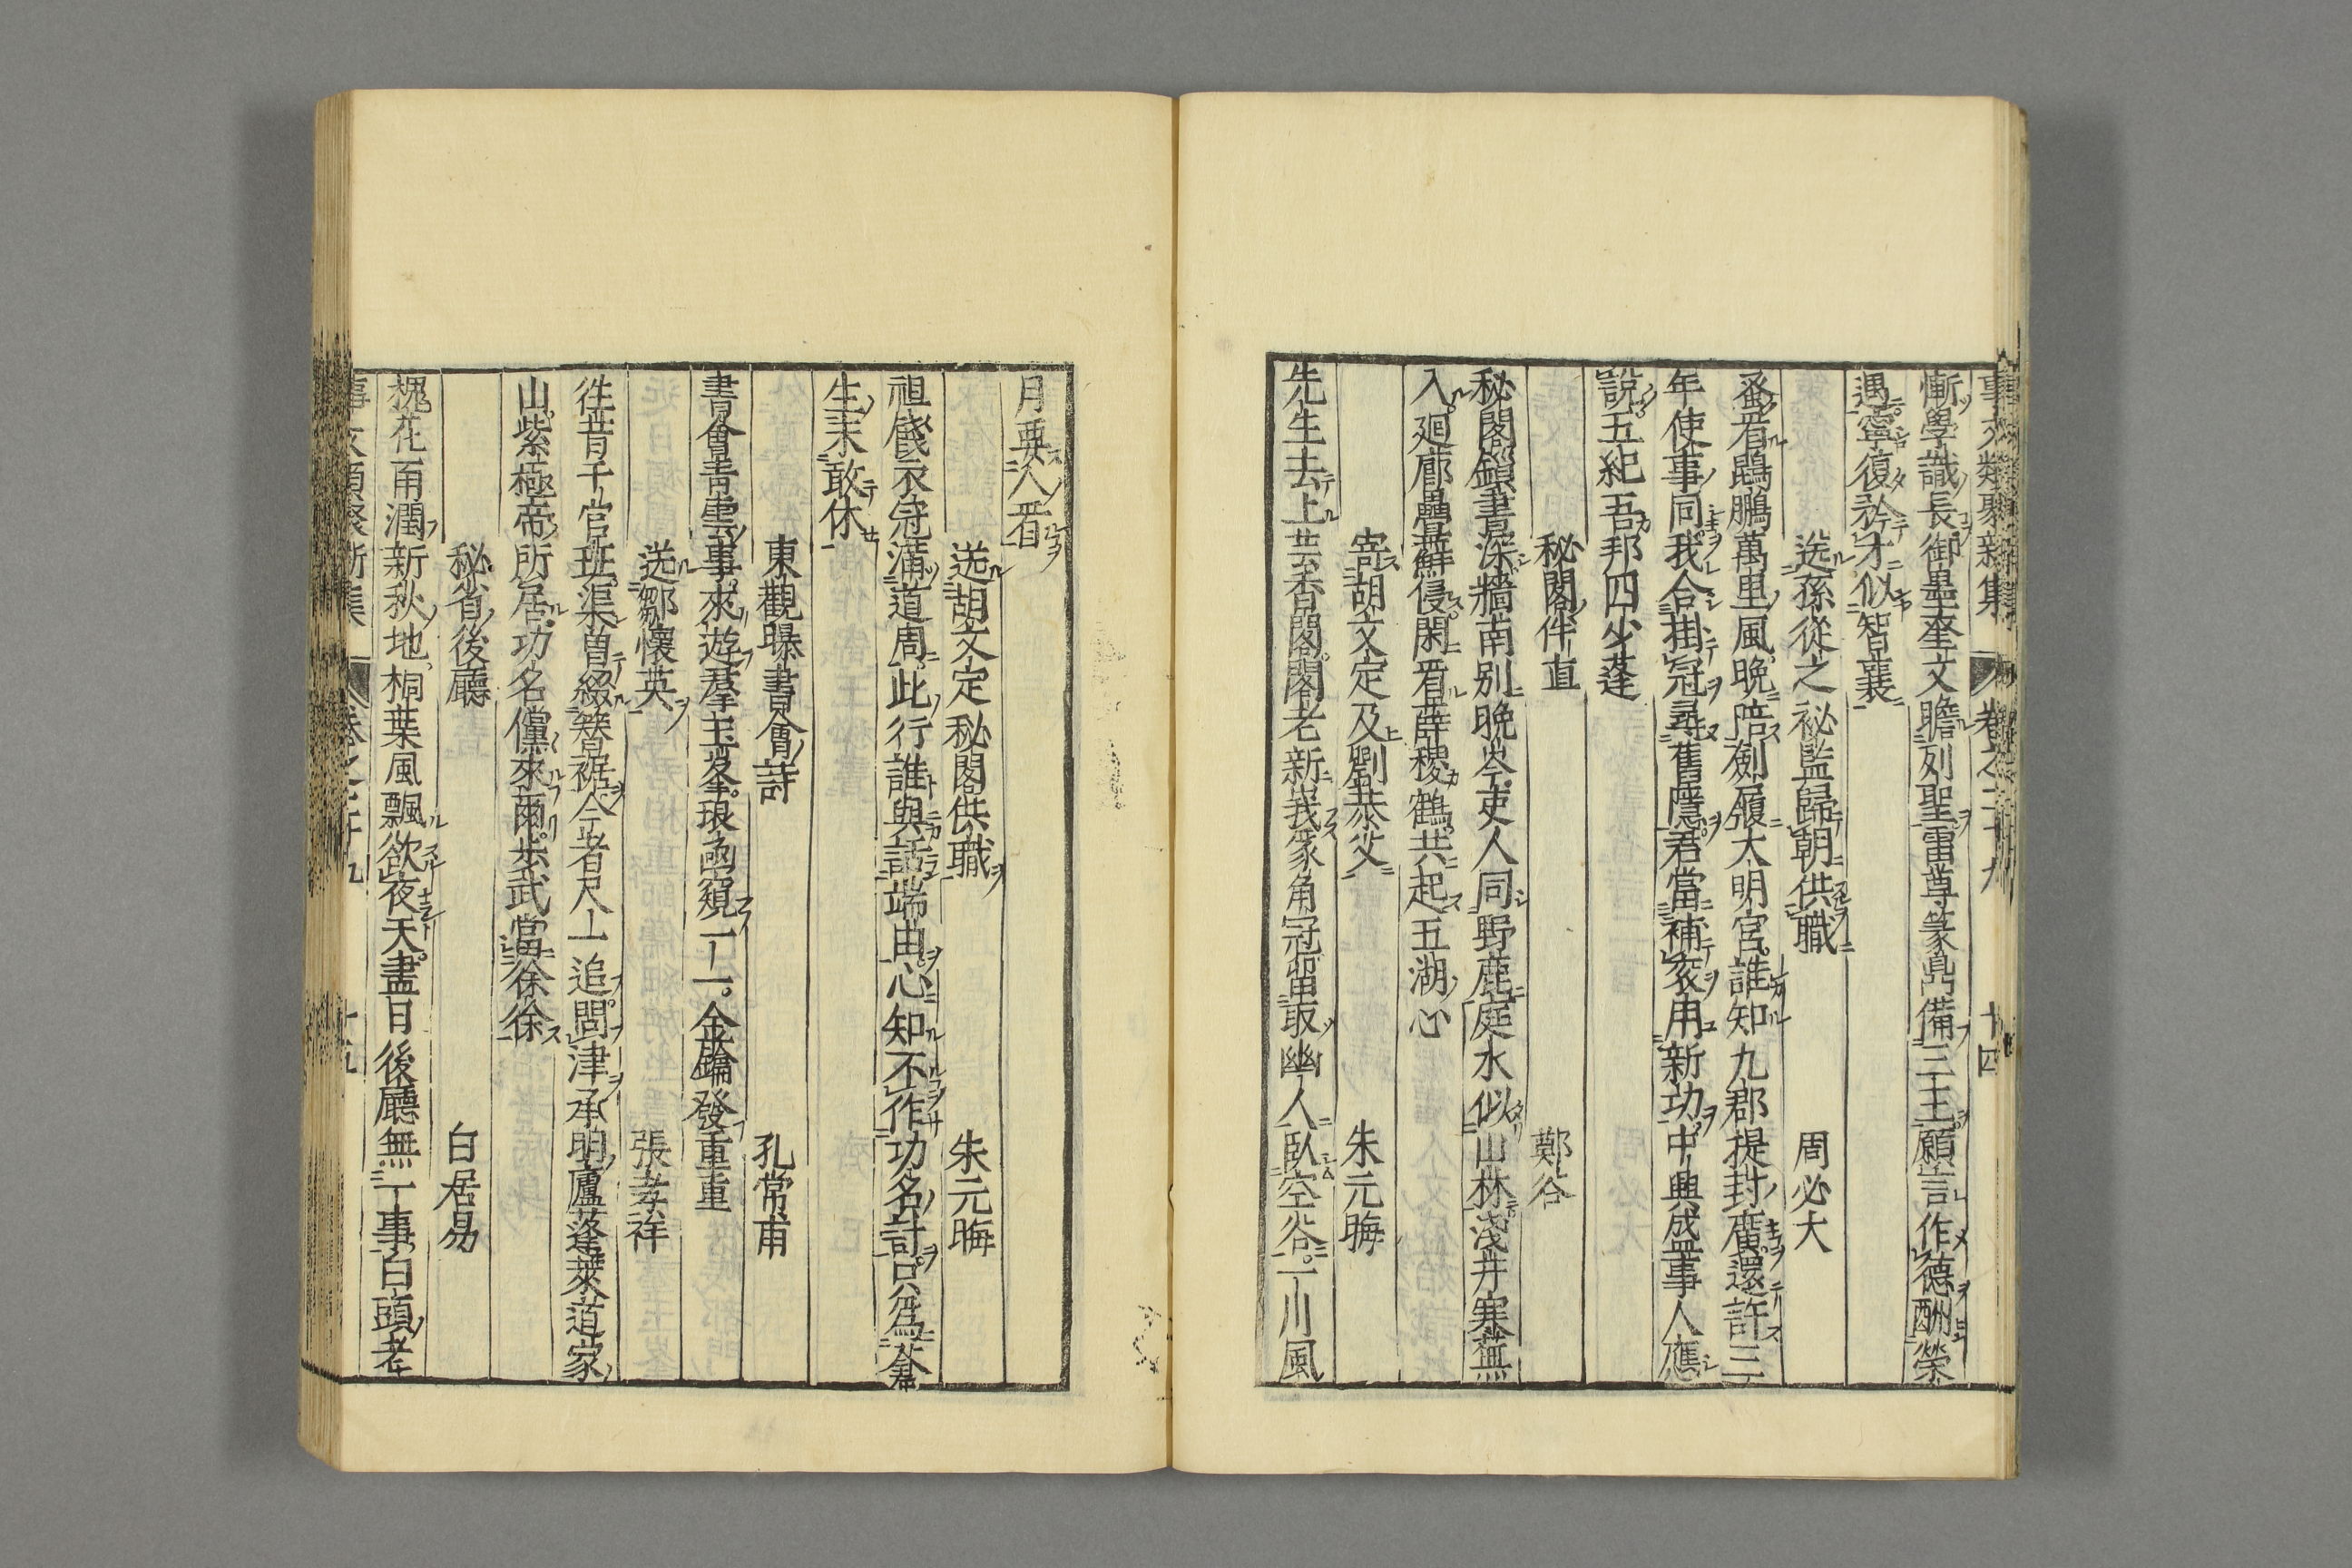 事文類聚新集 卷之二十九 十四
慚學識長御墨奎文瞻列聖雷尊篆鼎備三王願言作德酬榮
遇寧復矜才似智襄
送孫從之祕監歸朝供職 周必大
蚤看鵾鵬萬里風晚陪劍履大明宮誰知九郡提封廣還許三
年使事同我合掛冠尋舊隱君當補袞用新功中興盛事人應
說五紀吾邦四少蓬
秘閣伴直 鄭谷
秘閣鎖書深牆南別晚岑吏人同野鹿庭水似山林淺井寒蕪
入廻廊疊蘚侵閑看薛稷鶴共起五湖心
寄胡文定及劉恭父 朱元晦
先生去上芸香閣閣老新峩豸角冠留取幽人臥空谷一川風
月要人看
送胡文定秘閣供職 朱元晦
祖餞衣冠滿道周此行誰與話端由心知不作功名計只爲蒼
生未敢休
東觀曝書會詩 孔常甫
書會青雲事來遊羣玉峯琅函窺一一金鑰發重重
送鄒懷英 張孝祥
徃昔千官班渠曾綴簪裾今者尺一追問津承明廬蓬萊道家
山紫極帝所居功名儻來爾步武當徐徐
秘省後廳 白居易
槐花雨潤新秋地桐葉風飄欲夜天盡日後廳無一事白頭老
事文類聚新集 卷之二十九 十五